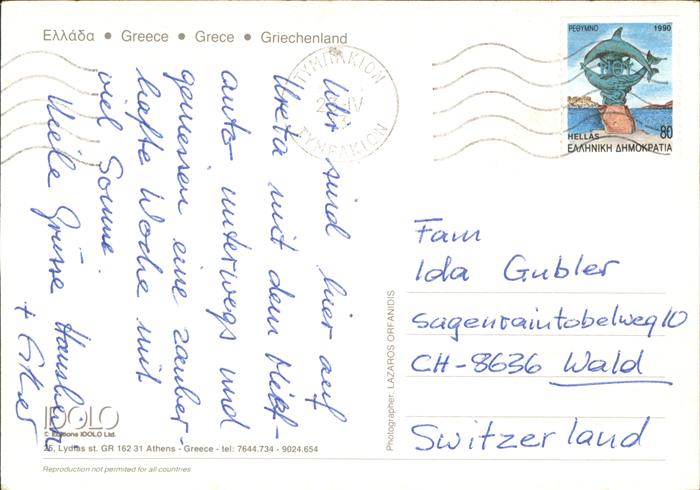 Ελλάδα • Greece • Grece • Griechenland
ΤΥΜΠΑΚΙΟΝ
IV
ΤΥΜΠΑΚΙΟΝ
ΡΕΘΥΜΝΟ 1990
HELLAS 80
ΕΛΛΗΝΙΚΗ ΔΗΜΟΚΡΑΤΙΑ
Wir sind hier auf
Kreta mit dem Miet-
auto unterwegs und
geniessen eine zauber-
hafte Woche mit
viel Sonne.
Viele Grüsse Hansheiri
+ Esther
Fam
Ida Gubler
Sagenraintobelweg 10
CH-8636 Wald
Switzerland
Photographer: LAZAROS ORFANIDIS
IDOLO
© Editions IDOLO Ltd.
25, Lydias st. GR 162 31 Athens - Greece - tel: 7644.734 - 9024.654
Reproduction not permited for all countries